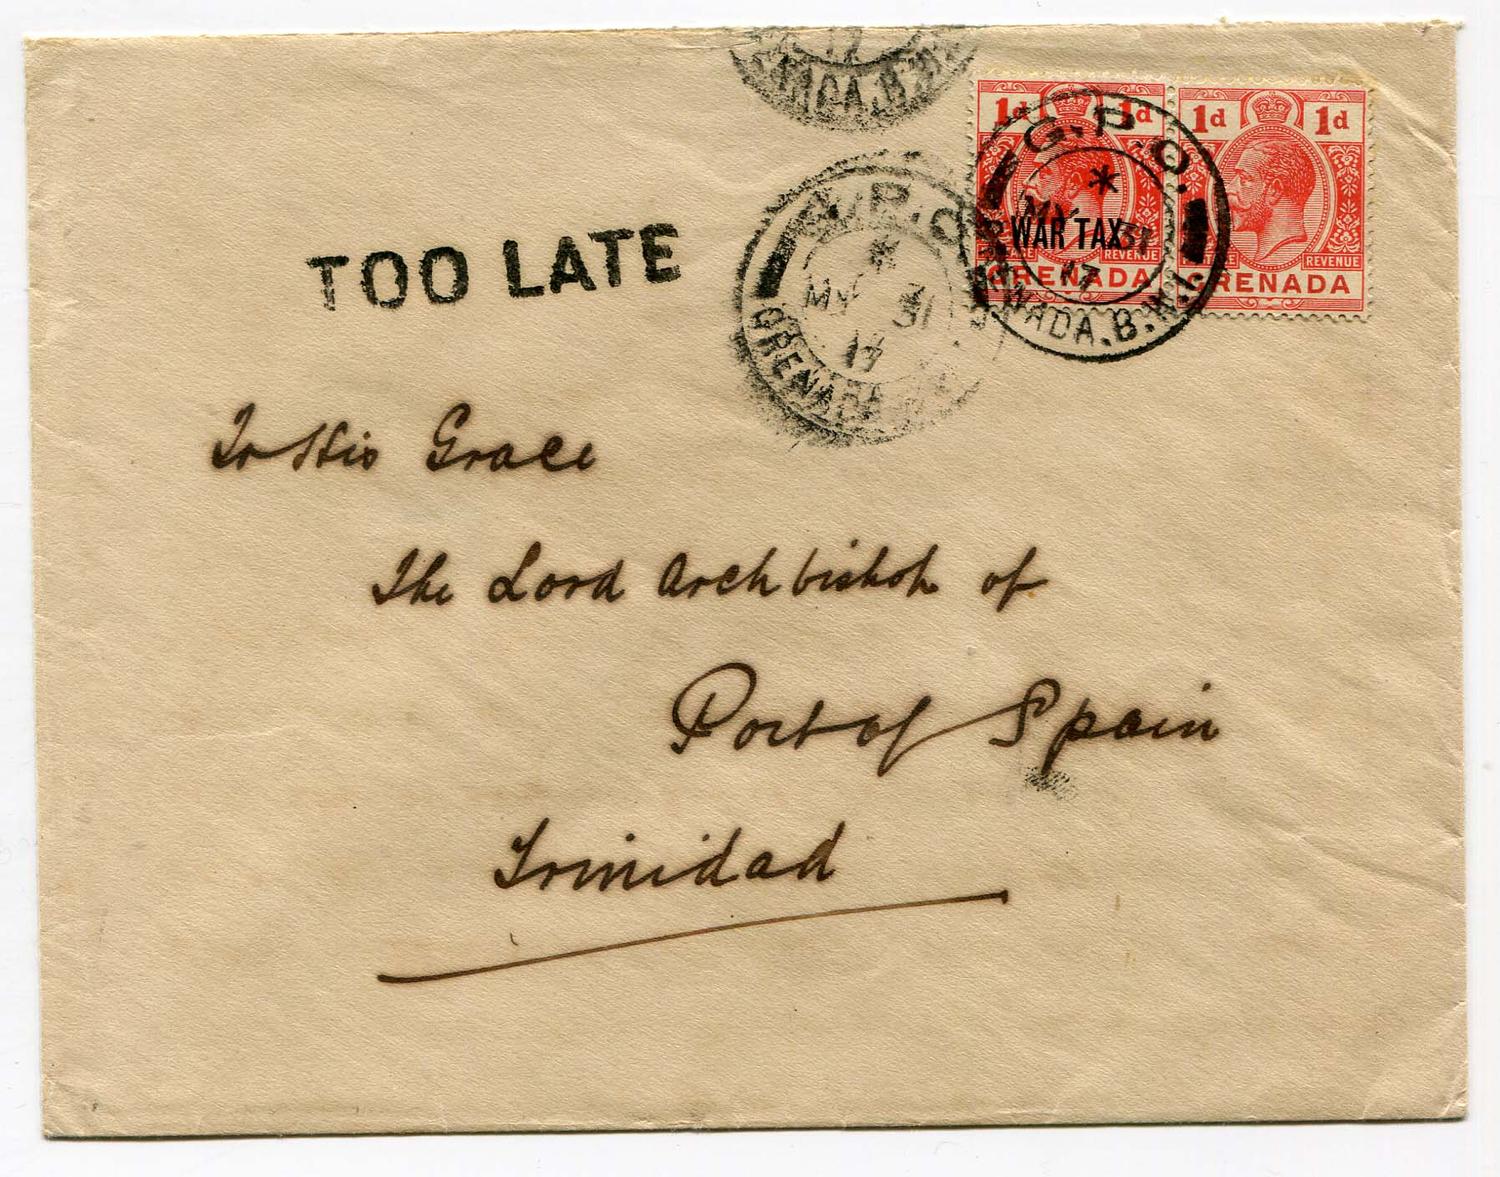 17
NADA. B. W.
1d 1d
1d 1d
G.P.O.
MY 31
17
GRENADA. B.W.I.
WAR TAX
REVENUE
REVENUE
GRENADA
GRENADA
G.P.O
MY 31
17
GRENADA
TOO LATE
To His Grace
The Lord Archbishop of
Port of Spain
Trinidad